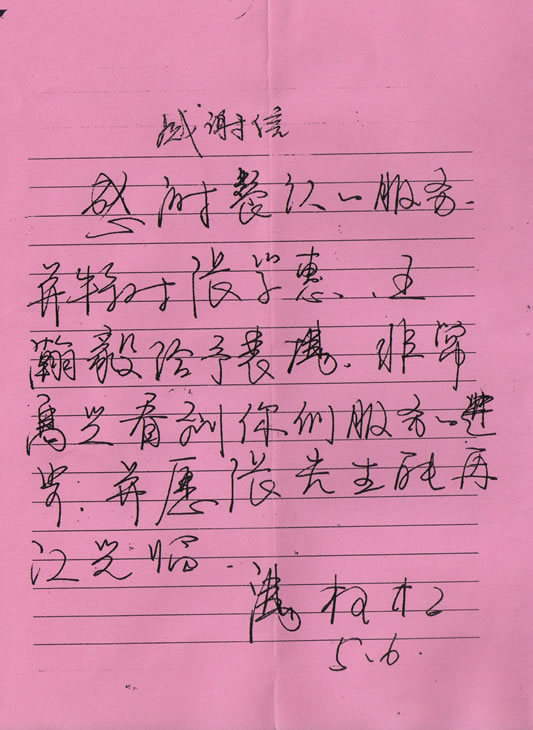 感谢信
感谢餐饮一服务.
并特对张学惠、王
瀚毅给予表扬. 非常
高兴看到你们服务一进
步. 并愿张先生能再
次光临.
杜
5.6.